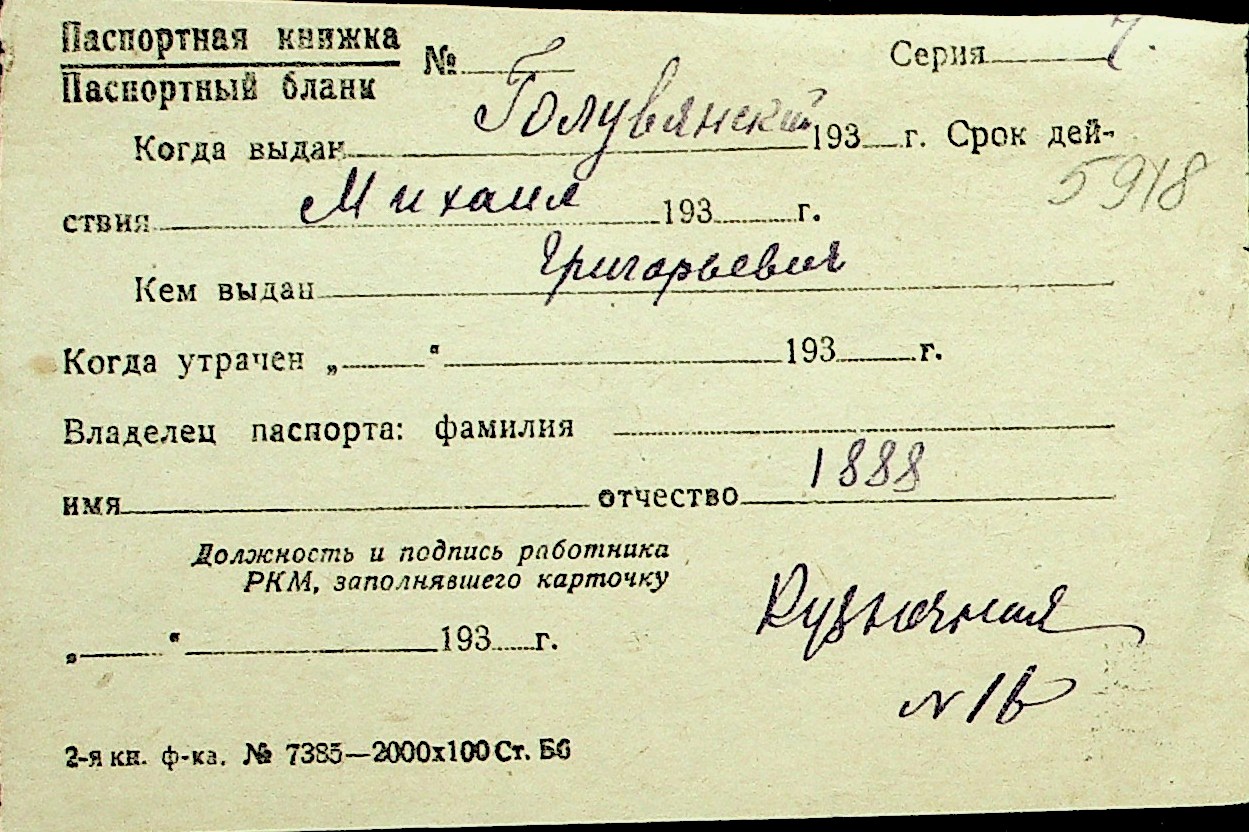 Паспортная книжка
Паспортный бланк № Серия 7.
Голувянский
Когда выдан 193 г. Срок дей-
5918
Михаил
ствия 193 г.
Григорьевич
Кем выдан
Когда утрачен „ “ 193 г.
Владелец паспорта: фамилия
1888
имя отчество
Должность и подпись работника
РКМ, заполнявшего карточку
Кузнечная
„ “ 193 г.
№ 16
2-я кн. ф-ка. № 7385—2000х100 Ст. Бб